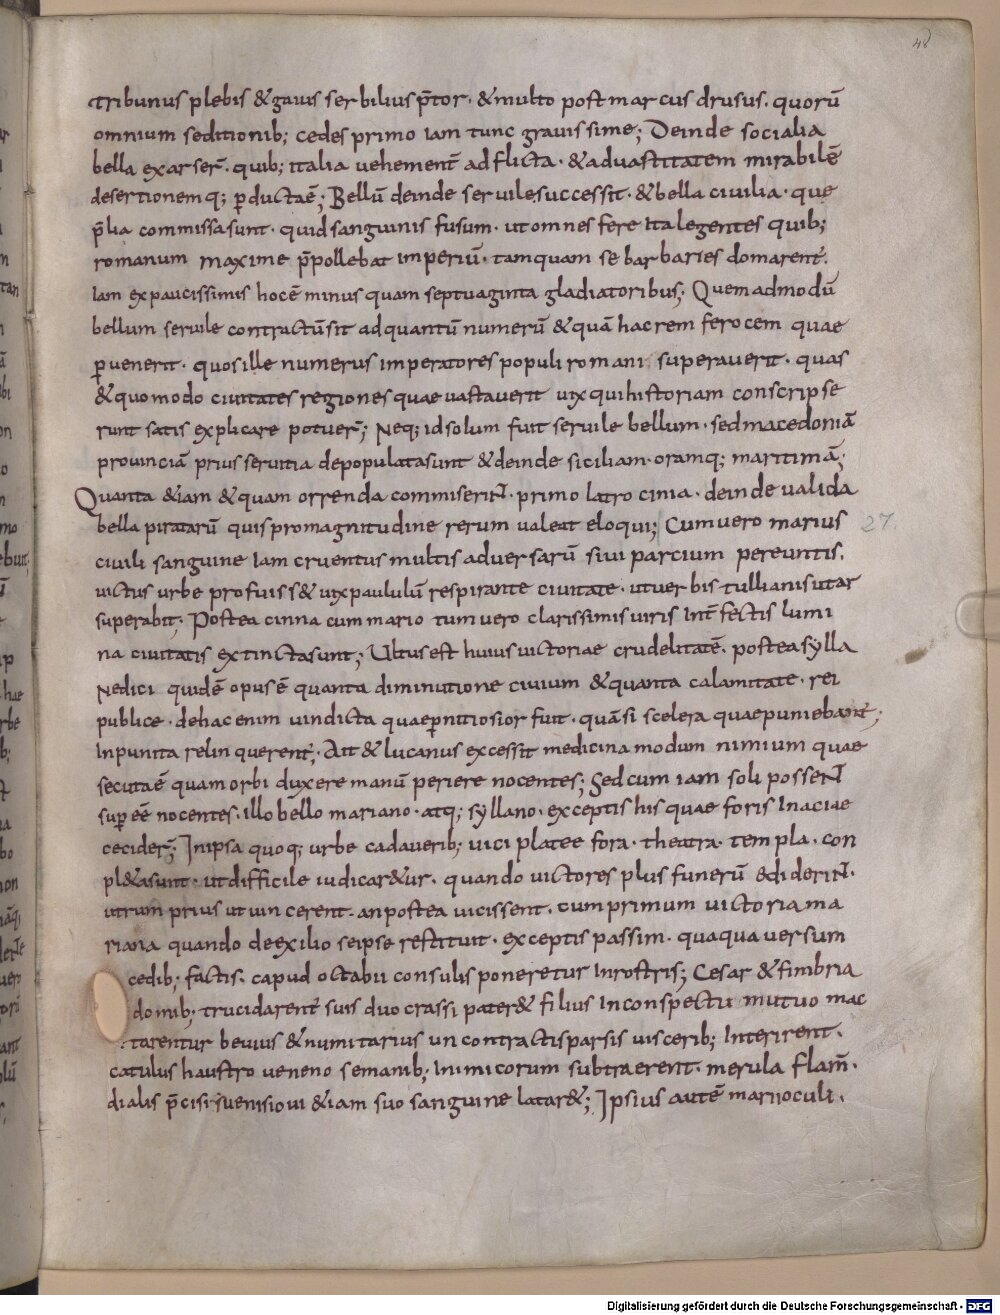 48
tribunus plebis & gaius serbilius p̄tor· & multo post marcus drusus· quorū
omnium seditionib; cedes primo iam tunc grauissime; Deinde socialia
bella exarser̄· quib; italia uehement̄ adflicta· & ad uastitatem mirabilē
desertionemq; ꝑducta ē; Bellū deinde seruile successit· & bella ciuilia· que
p̄lia commissa sunt· quid sanguinis fusum· ut omnes fere itale gentes quib;
romanum maxime p̄pollebat imperiū· tamquam se barbaries domarent̄.
Iam ex paucissimis hoc ē minus quam septuaginta gladiatoribus; Quemadmodū
bellum seruile contractū sit ad quantū numerū & quā hac rem ferocem quae
ꝑuenerit· quos ille numerus imperatores populi romani superauerit· quas
& quomodo ciuitates regiones quae uastauerit uix qui historiam conscripse
runt satis explicare potuer̄; Neq; id solum fuit seruile bellum· sed macedoniā
prouinciā prius seruitia depopulata sunt & deinde siciliam· oramq; maritimā;
Quanta &iam & quam orrenda commiseriNt· primo latrocinia· deinde valida
bella piratarū quis pro magnitudine rerum valeat eloqui; Cum uero marius
27.
ciuili sanguine Iam cruentus multis aduersarū siui parcium pereuntis.
uictus urbe profuiss& uix paululū respirante ciuitate· ut uerbis tullianis utar
superabit; Postea cinna cum mario tum uero clarissimis uiris int̄fectis lumi
na ciuitatis extincta sunt; Ultus est huius uictoriae crudelitatē· postea sylla
Nedici quidē opus ē quanta diminutione ciuium & quanta calamitate· rei
publice· de hac enim uindicta quae ꝑnitiosior fuit· quā si scelera quae puniebant̄;
Inpunita relinquerent̄; Ait & lucanus excessit medicina modum nimium quae
secuta ē quam orbi duxere manū periere nocentes; Sed cum iam soli posseNt
suꝑ eē nocentes· illo bello mariano· atq; syllano· exceptis his quae foris In aciae
cecider̄; In ipsa quoq; urbe cadauerib; uici platee fora· theatra· templa· con
pl&a sunt· ut difficile iudicar&ur· quando uictores plus funerū ediderıNt·
utrum prius ut uincerent· an postea uicissent· cum primum uictoria ma
riana quando de exilio se ipse restituit· exceptis passim· quaqua uersum
cedib; factis· capud octabii consulis poneretur In rostris; Cesar & fimbria
domib; trucidarent̄ suis duo crassi pater & filius In conspectu mutuo mac
tarentur beuius & numitarius unco ntracti sparsis uiscerib; Interirent·
catulus haustro ueneno se manib; Inimicorum subtraerent· merula flam̄·
dialis p̄cisis uenis ioui &iam suo sanguine latar&; Ipsius autē marii oculi·
Digitalisierung gefördert durch die Deutsche Forschungsgemeinschaft - DFG